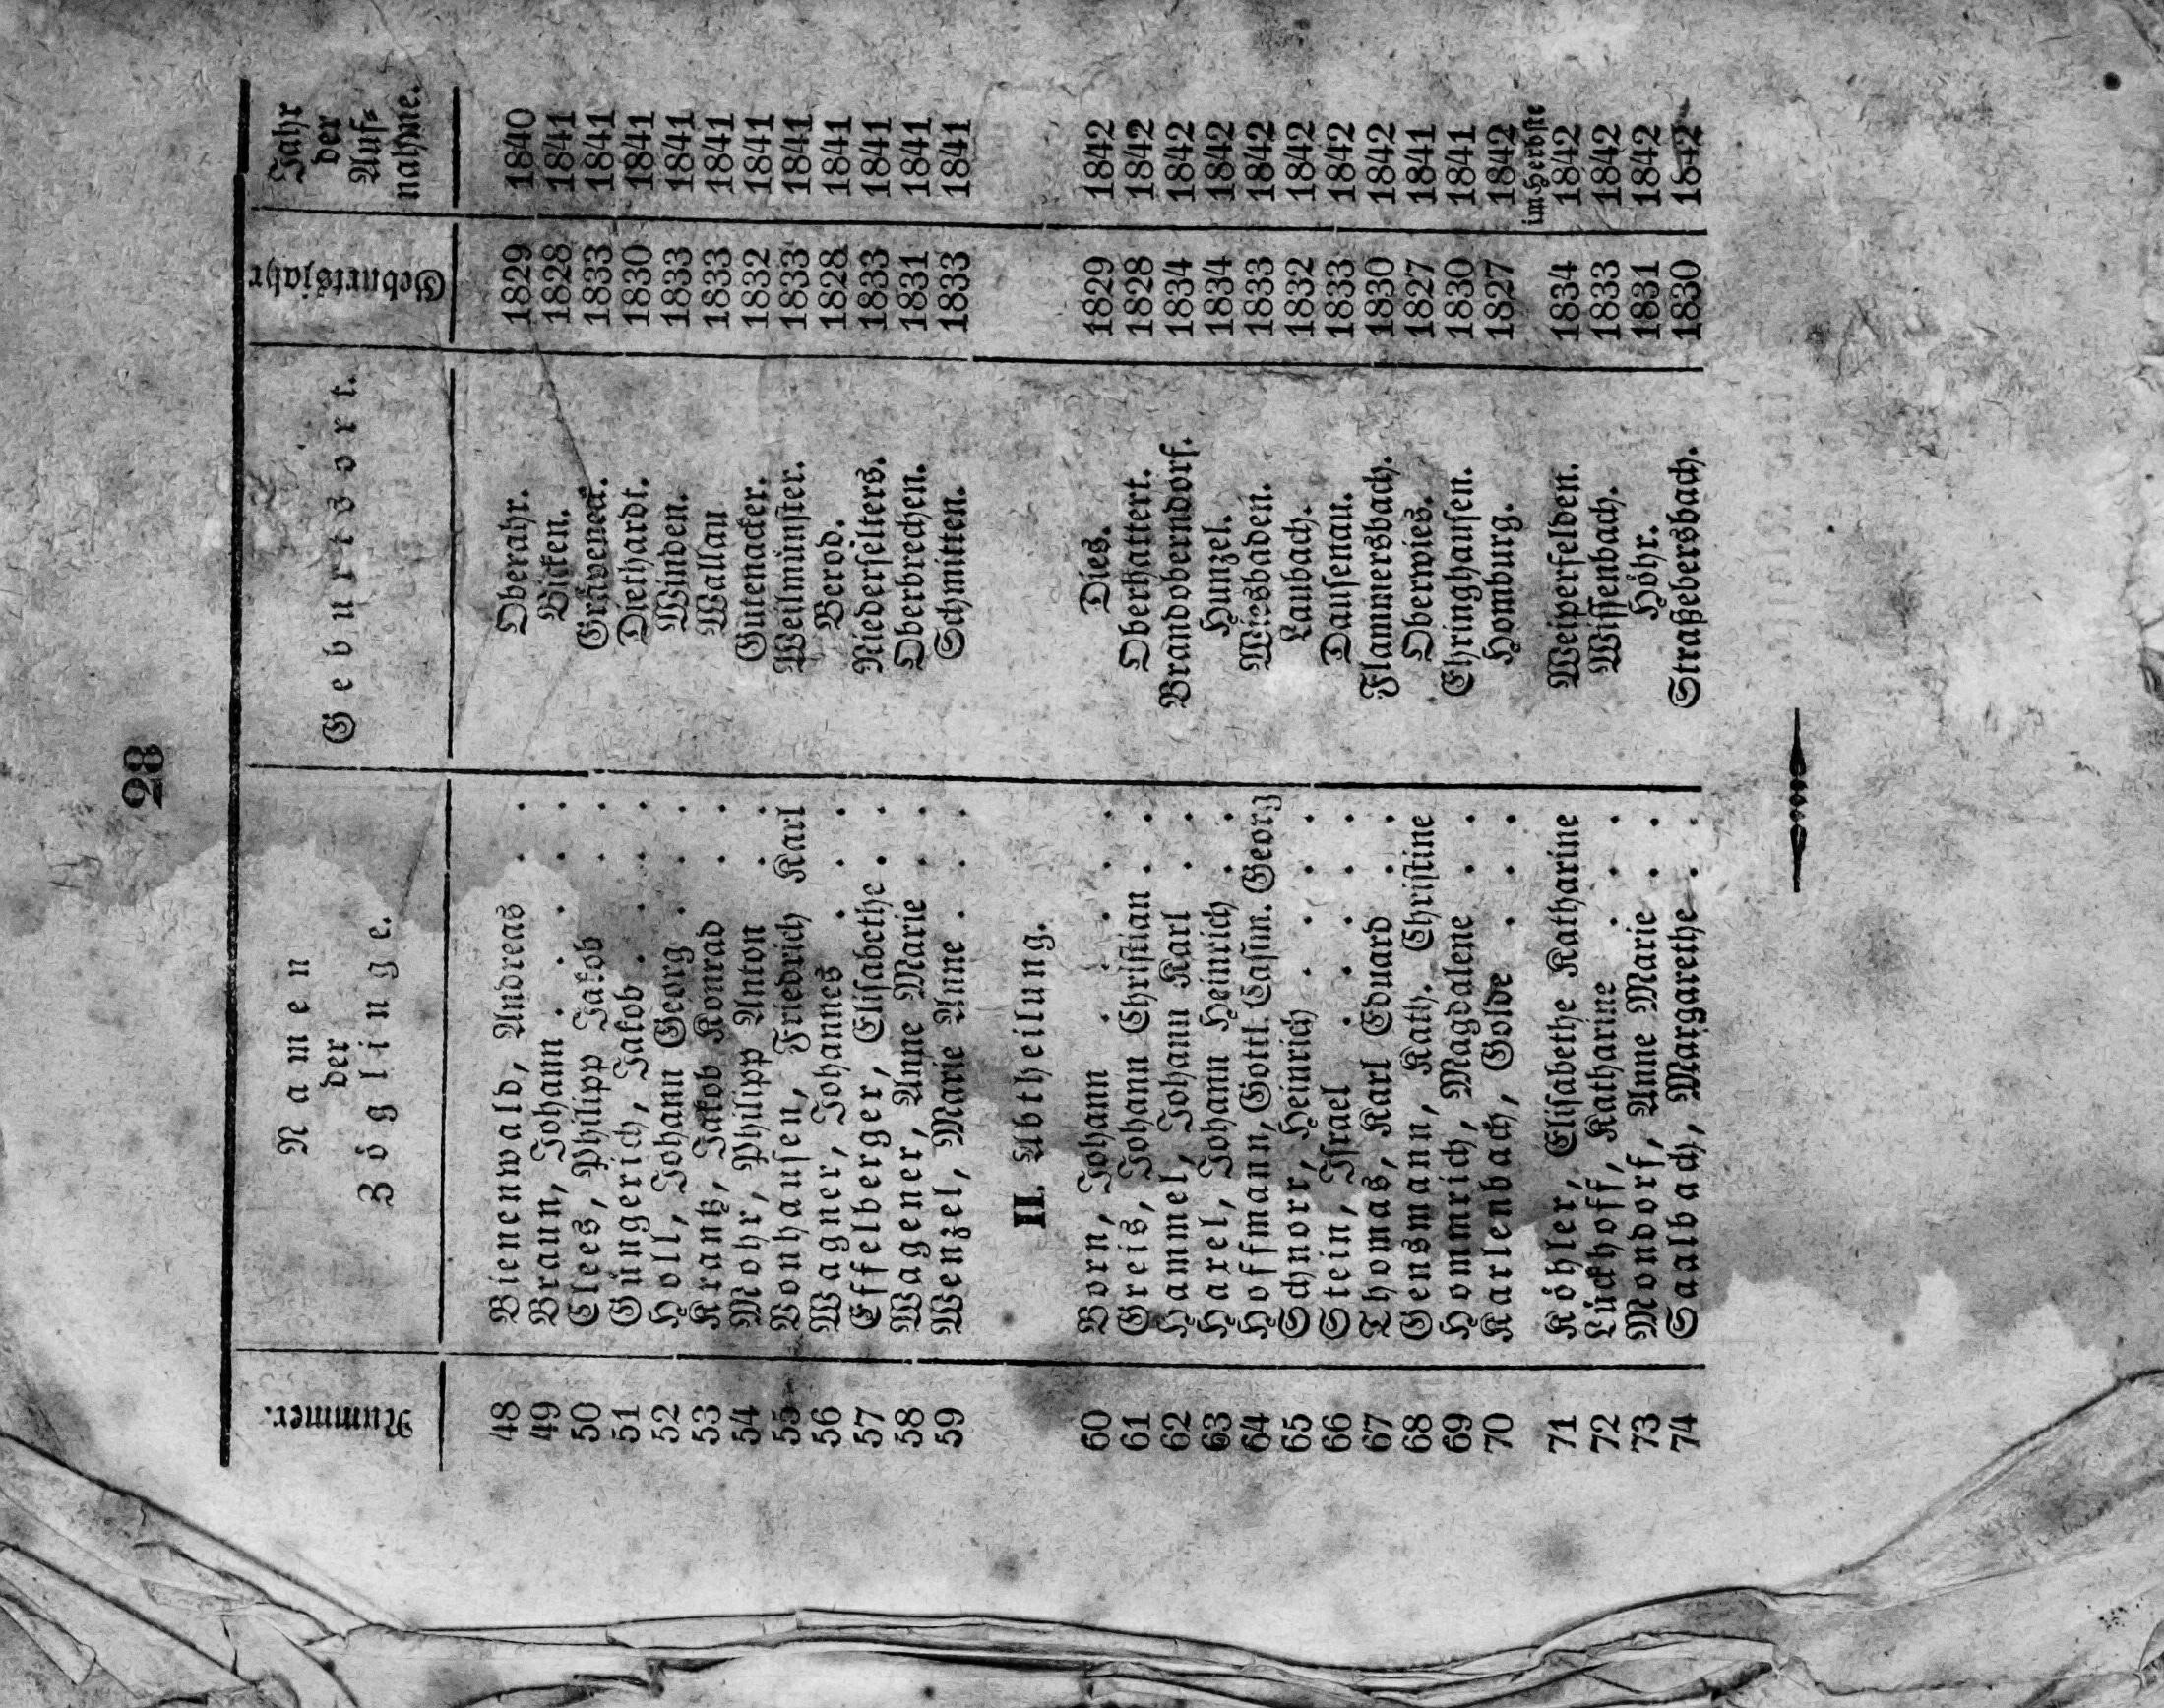 28
Nummer.
Namen
der
Zöglinge.
Geburtsort.
Geburtsjahr
Jahr
der
Auf=
nahme.
48 Bienenwald, Andreas . . Oberahr. 1829 1840
49 Braun, Johann . . . . Bicken. 1828 1841
50 Clees, Philipp Jakob . . Gräveneck. 1833 1841
51 Güngerich, Jakob . . . . Diethardt. 1830 1841
52 Holl, Johann Georg . . . Winden. 1833 1841
53 Krantz, Jakob Konrad . . Wallau 1833 1841
54 Mohr, Philipp Anton . . Gutenacker. 1832 1841
55 Vonhausen, Friedrich Karl Weilmünster. 1833 1841
56 Wagner, Johannes . . . Berod. 1828 1841
57 Effelberger, Elisabethe . . Niederselters. 1833 1841
58 Wagener, Anne Marie . . Oberbrechen. 1831 1841
59 Wenzel, Marie Anne . . . Schmitten. 1833 1841
II. Abtheilung.
60 Born, Johann . . . . . Dies. 1829 1842
61 Greis, Johann Christian . . Oberhattert. 1828 1842
62 Hammel, Johann Karl . . Brandoberndorf. 1834 1842
63 Harel, Johann Heinrich . . Hunzel. 1834 1842
64 Hoffmann, Gottl. Casim. Georg Wiesbaden. 1833 1842
65 Schnorr, Heinrich . . . . Laubach. 1832 1842
66 Stein, Israel . . . . . Dausenau. 1833 1842
67 Thomas, Karl Eduard . . Flammersbach. 1830 1842
68 Gensmann, Kath. Christine Oberwies. 1827 1841
69 Hommrich, Magdalene . . Ehringhausen. 1830 1841
70 Karlenbach, Golde . . . Homburg. 1827 1842
im Herbste
71 Köhler, Elisabethe Katharine Weiperfelden. 1834 1842
72 Lückhoff, Katharine . . . Wissenbach. 1833 1842
73 Mondorf, Anne Marie . . Höhr. 1831 1842
74 Saalbach, Margarethe . . Straßebersbach. 1830 1842